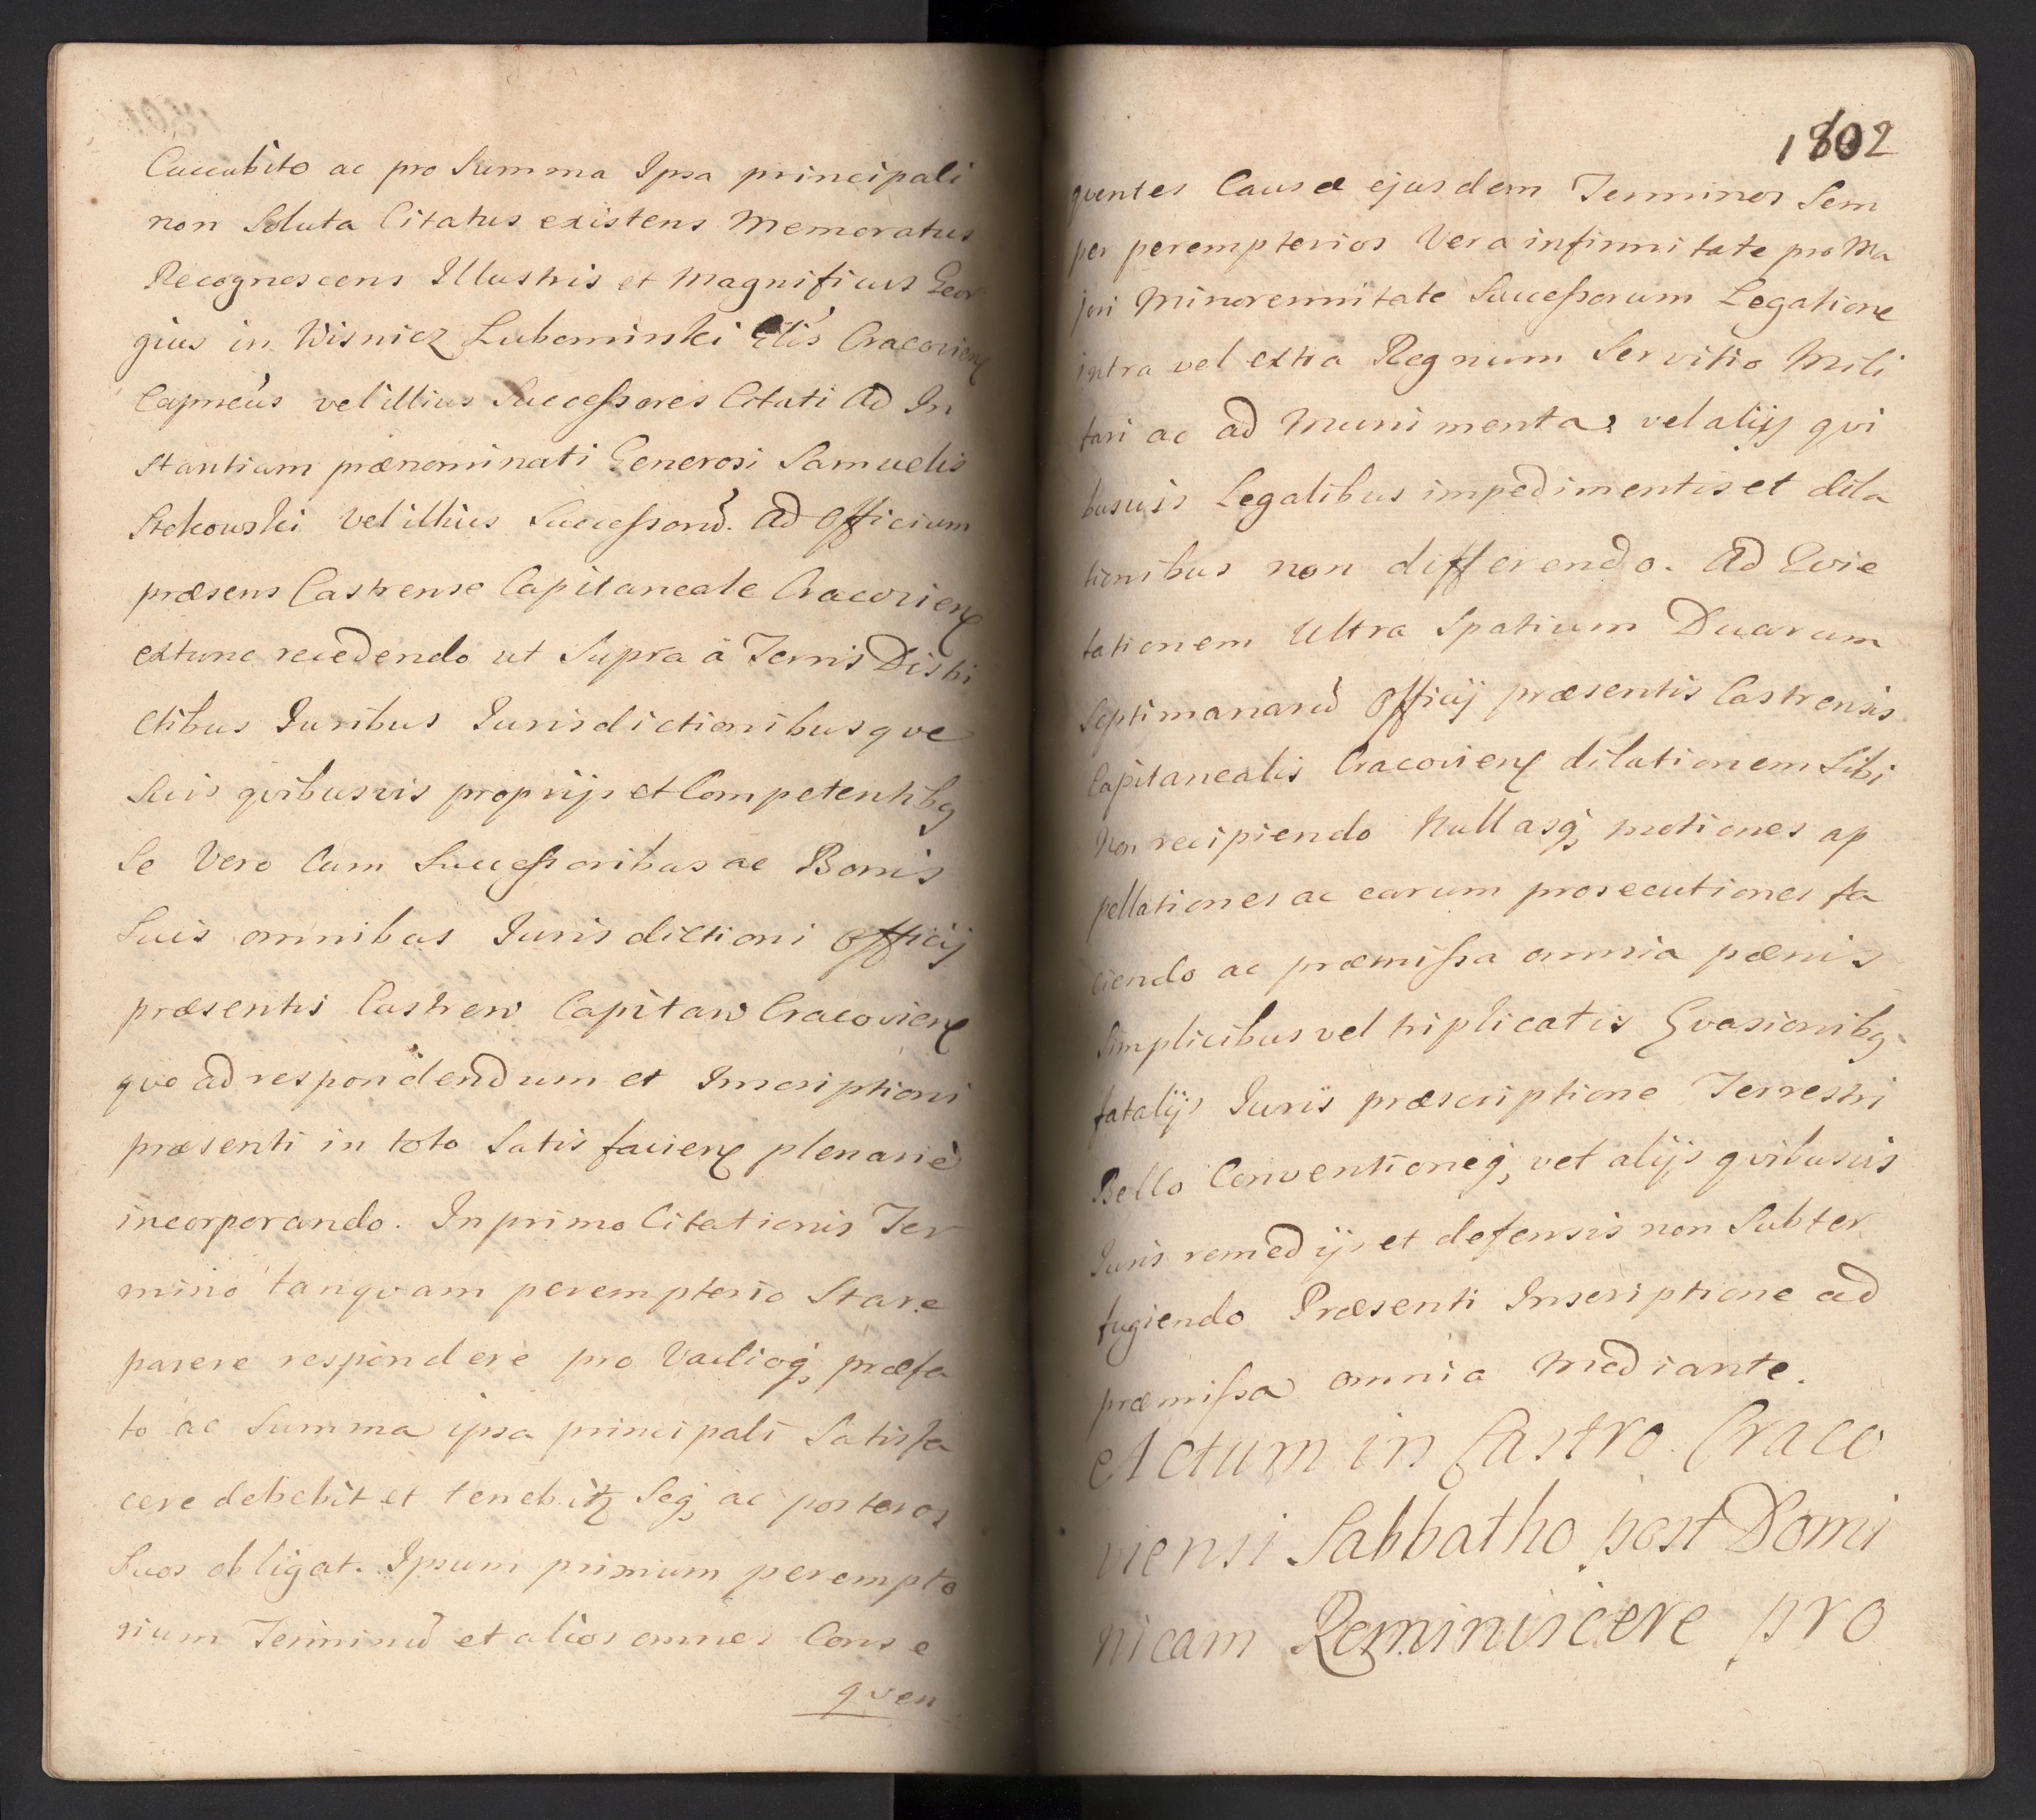 Cuccubito ac pro Summa Ipsa principali
non Soluta Citatus existens Memoratus
Recognoscens Illustris et Magnificus Geor
gius in Wisnicz Lubomirski Gńlis Cracovien
Capneus vel illius Successores Citati Ad In
stantiam prænominati Generosi Samuelis
Stokowski vel illius Successorũ. Ad Officium
præsens Castrense Capitaneale Cracovien
extunc recedendo ut Supra à Terris Distri
ctibus Iuribus Iurisdictionibusqve
Suis qvibusvis proprijs et Competentibq
Se Vero Cum Successoribus ac Bonis
Suis omnibus Iurisdictioni Officij
præsentis Castren Capitan Cracovien
qve ad respondendum et Inscriptioni
præsenti in toto Satis facien plenariè
incorporando. In primo Citationis Ter
mino tanqvam peremptorio Stare
parere respondere pro Vadioq, præfa
to ac Summa ipsa principali Satisfa
cere debebit et tenebitz Seq, ac posteros
Suos obligat. Ipsum primum perempto
rium Terminũ et alios omnes Conse
qven
1802
qventes Causæ ejusdem Terminos Sem
per peremptorios Vera infirmitate pro Ma
jori Minorennitate Successorum Legatione
intra vel extra Regnum Servitio Mili
tari ac ad Munimenta, vel alijs qvi
busvis Legalibus impedimentis et dila
tionibus non differendo. Ad Evic
tationem Ultra Spatium Duarum
Septimanarũ Officij præsentis Castrensis
Capitanealis Cracovien dilationem Sibi
Non recipiendo Nullasq, motiones ap
pellationes ac earum prosecutiones fa
ciendo ac præmissa omnia pænis
Simplicibus vel triplicatis Evasionibq
fatalijs Iuris præscriptione Terrestri
Bello Conventioneq, vel alijs qvibusvis
Iuris remedijs et defensis non Subter
fugiendo Præsenti Inscriptione ad
præmissa omnia Mediante.
Actum in Castro Craco
viensi Sabbatho post Domi
nicam Reminiscere pro